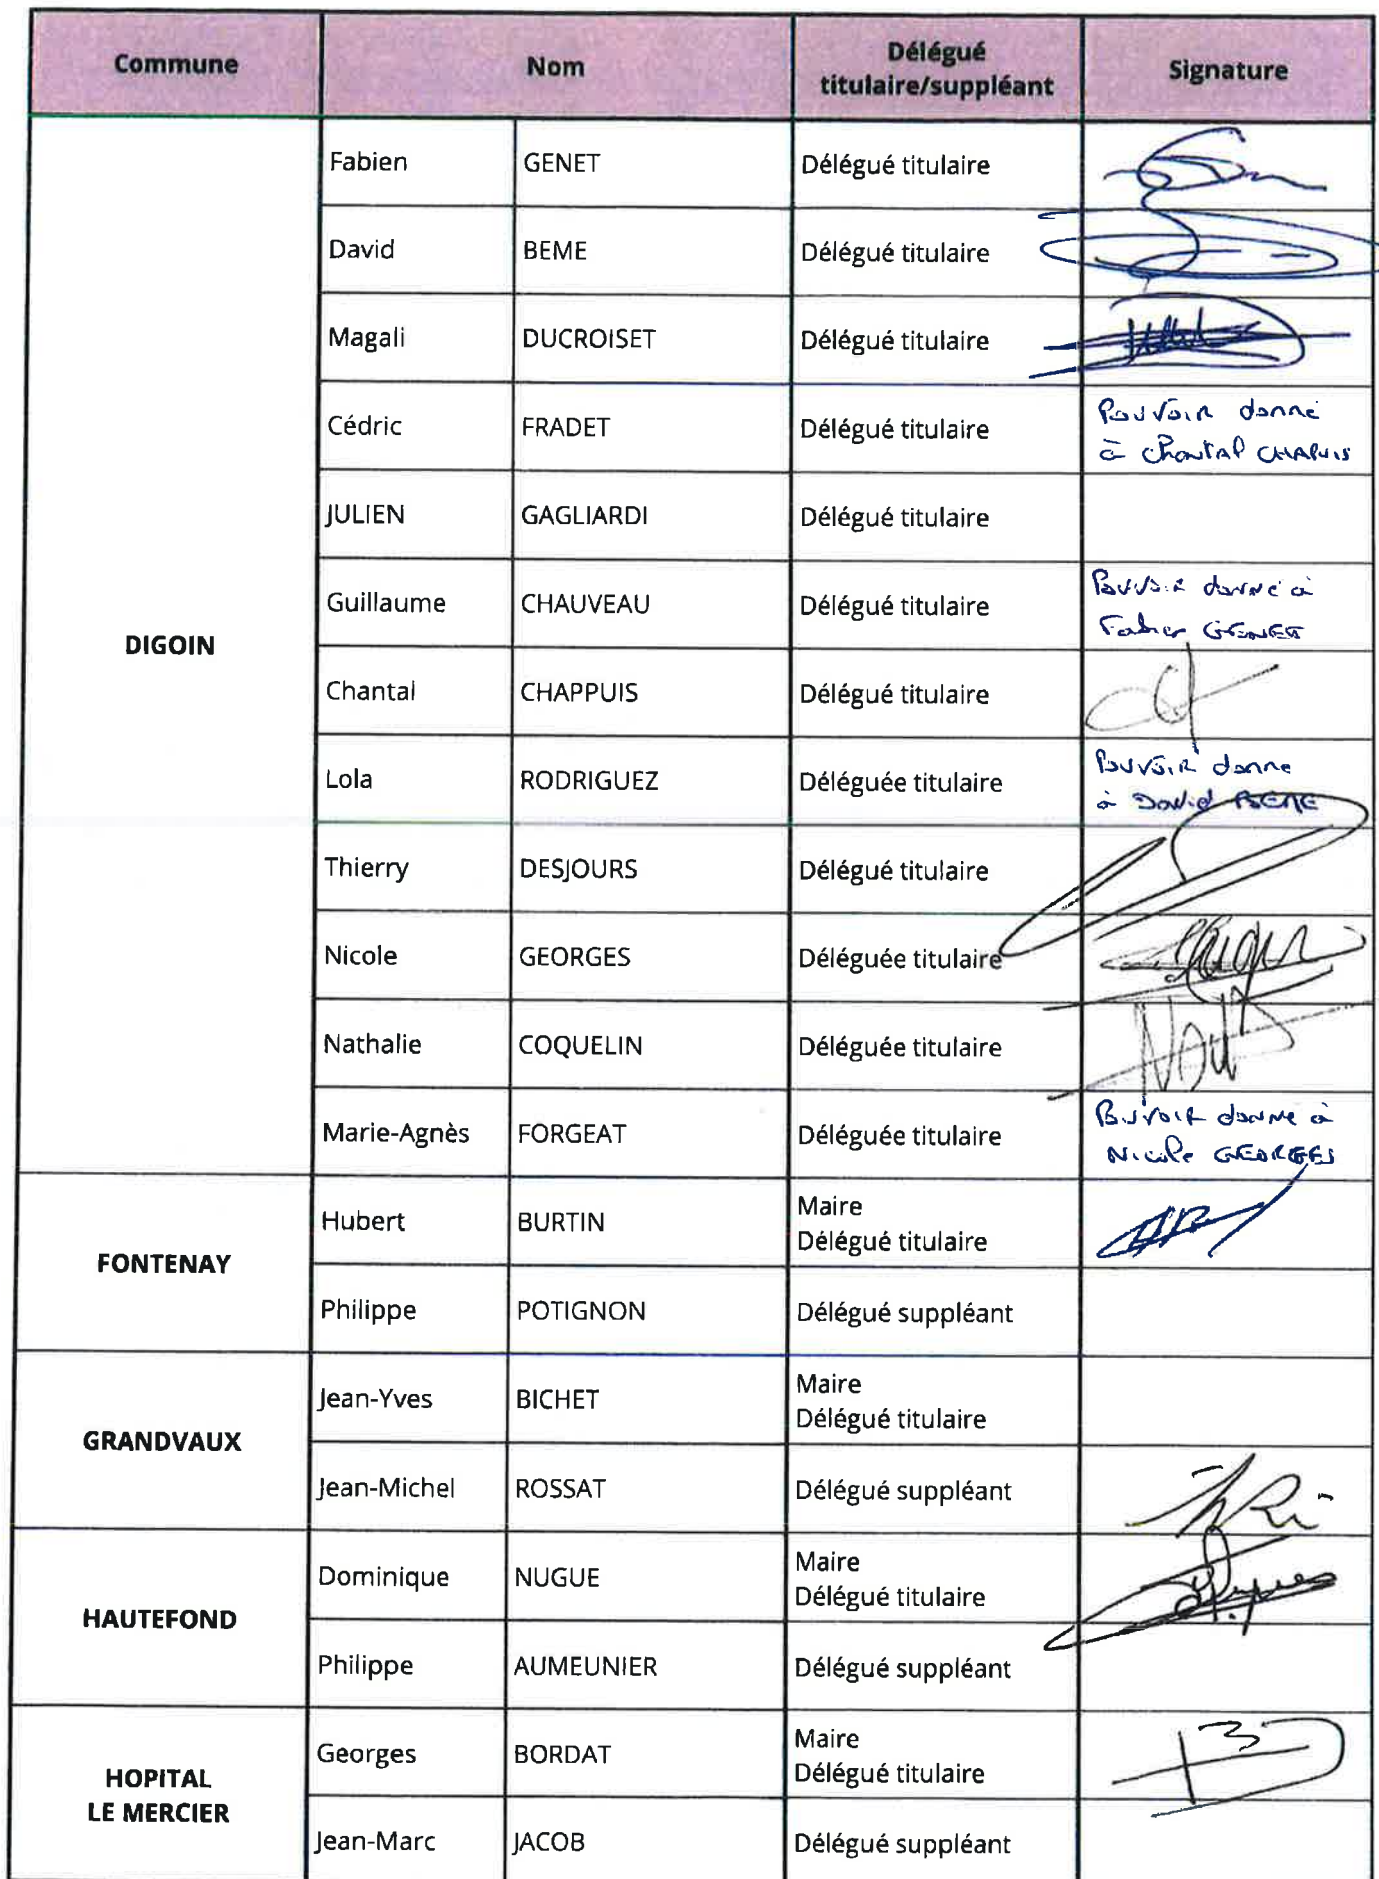 Commune Nom Délégué titulaire/suppléant Signature
DIGOIN
Fabien GENET Délégué titulaire
David BEME Délégué titulaire
Magali DUCROISET Délégué titulaire
Cédric FRADET Délégué titulaire
Pouvoir donné
à Chantal CHAPUIS
JULIEN GAGLIARDI Délégué titulaire
Guillaume CHAUVEAU Délégué titulaire
Pouvoir donné à
Fabien GENET
Chantal CHAPPUIS Délégué titulaire
Lola RODRIGUEZ Déléguée titulaire
Pouvoir donné
à David BEME
Thierry DESJOURS Délégué titulaire
Nicole GEORGES Déléguée titulaire
Nathalie COQUELIN Déléguée titulaire
Marie-Agnès FORGEAT Déléguée titulaire
Pouvoir donné à
Nicole GEORGES
FONTENAY
Hubert BURTIN Maire
Délégué titulaire
Philippe POTIGNON Délégué suppléant
GRANDVAUX
Jean-Yves BICHET Maire
Délégué titulaire
Jean-Michel ROSSAT Délégué suppléant
HAUTEFOND
Dominique NUGUE Maire
Délégué titulaire
Philippe AUMEUNIER Délégué suppléant
HOPITAL
LE MERCIER
Georges BORDAT Maire
Délégué titulaire
Jean-Marc JACOB Délégué suppléant